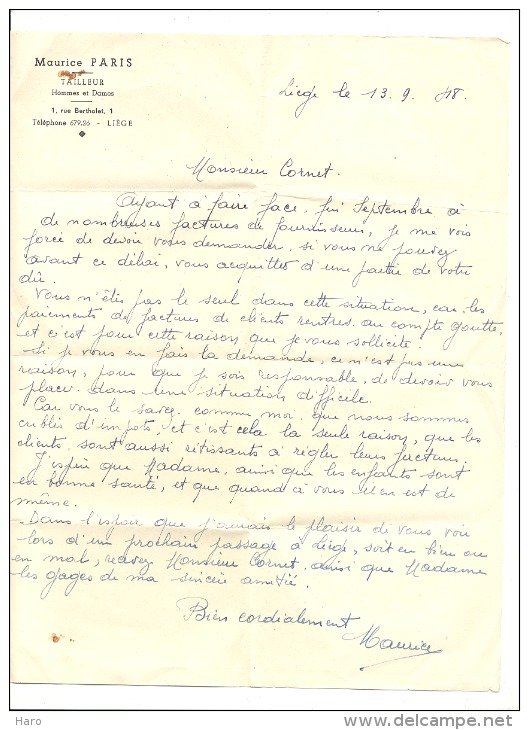 Maurice PARIS
TAILLEUR
Hommes et Dames
1, rue Bertholet, 1
Téléphone 679.26 - LIÈGE
Liège le 13.9.48.
Monsieur Cornet.
Ayant à faire face, fin Septembre, à
de nombreuses factures de fournisseurs, je me vois
forcé de devoir vous demander, si vous ne pouvez
avant ce délai, vous acquitter d'une partie de votre
dû.
Vous n'êtes pas le seul dans cette situation, car les
paiements de factures de clients rentres au compte goutte,
et c'est pour cette raison que je vous sollicite.
Si je vous en fais la demande, ce n'est pas une
raison, pour que je sois responsable, de devoir vous
placer dans une situation difficile.
Car vous le savez comme moi que nous sommes
criblés d'impots, et c'est cela la seule raison, que les
clients sont aussi rétissants à régler leurs factures.
J'espère que Madame, ainsi que les enfants sont
en bonne santé, et que quand à vous il en est de
même.
Dans l'espoir que j'aurais le plaisir de vous voir
lors d'un prochain passage à Liège, soit en bien ou
en mal, recevez Monsieur Cornet, ainsi que Madame
les gages de ma sincère amitié.
Bien cordialement
Maurice
Haro
www.delcampe.net